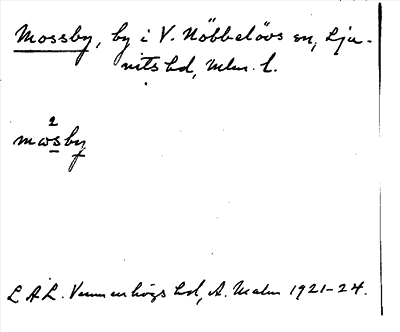 Mossby, by i V. Nöbbelövs sn, Lju-
nits hd, Mlm. l.
2
mωsby
L A L. Vemmenhögs hd, A. Malm 1921-24.